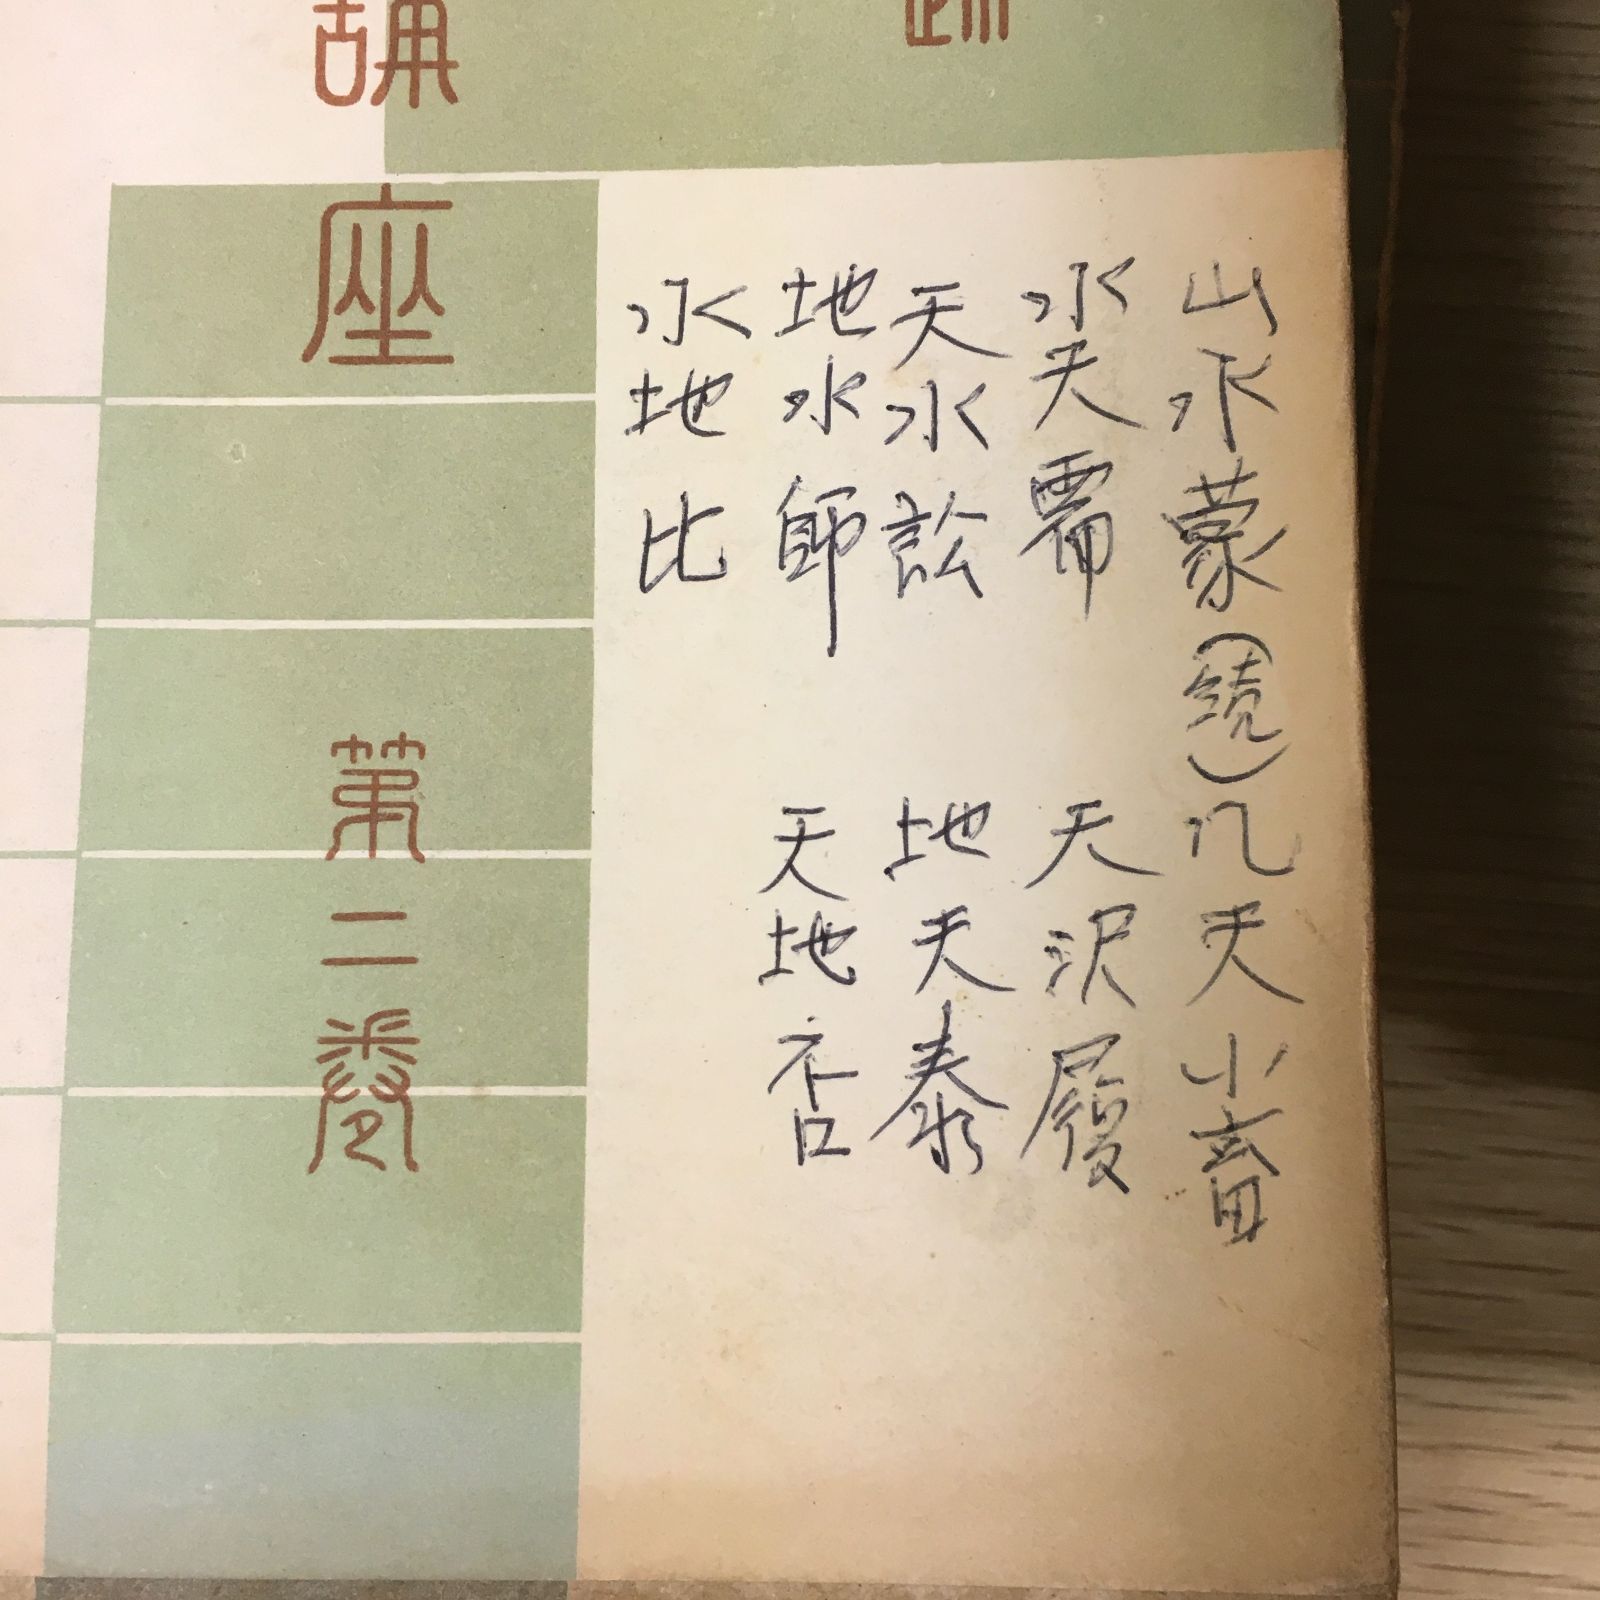 山水蒙(続)
水天需
天水訟
地水師
水地比
几天小畜
天沢履
地天泰
天地否
講座
第二卷